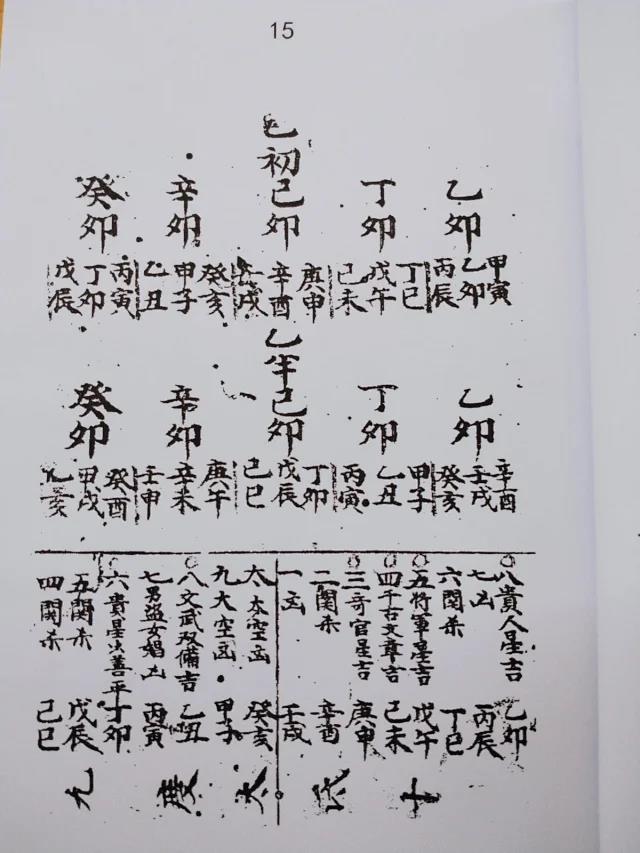 15
初
乙卯
丁卯
己卯
辛卯
癸卯
甲寅
乙卯
丙辰
丁巳
戊午
己未
庚申
辛酉
壬戌
癸亥
甲子
乙丑
丙寅
丁卯
戊辰
乙半
乙卯
丁卯
己卯
辛卯
癸卯
辛酉
壬戌
癸亥
甲子
乙丑
丙寅
丁卯
戊辰
己巳
庚午
辛未
壬申
癸酉
甲戌
乙亥
八貴人星吉 乙卯
七凶 丙辰
六関杀 丁巳
五将軍星吉 戊午
四千古文章吉 己未
三奇官星吉 庚申
二関杀 辛酉
一凶 壬戌
太太空凶 癸亥
九大空凶 甲子
八文武双備吉 乙丑
七男盗女娼凶 丙寅
六貴星善平 丁卯
五関杀 戊辰
四関杀 己巳
十
太
度
九